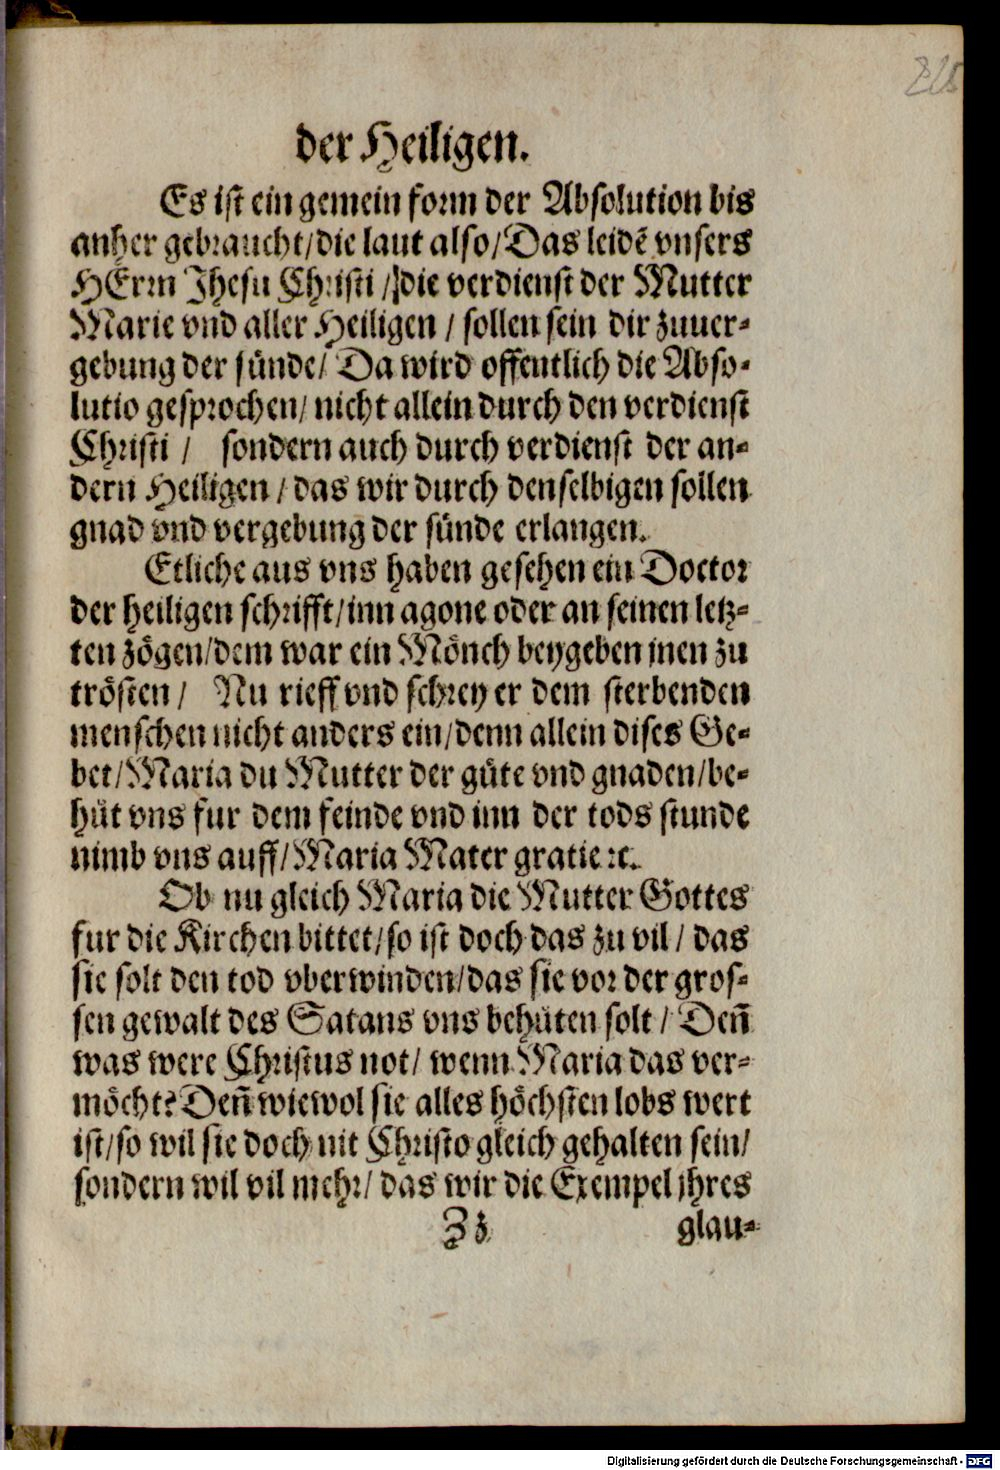 der Heiligen.
Es ist ein gemein form der Absolution bis
anher gebraucht/die laut also/Das leidē vnsers
HErrn Jhesu Christi /die verdienst der Mutter
Marie vnd aller Heiligen / sollen sein dir zuuer-
gebung der sünde/ Da wird offentlich die Abso-
lutio gesprochen/ nicht allein durch den verdienst
Christi / sondern auch durch verdienst der an-
dern Heiligen / das wir durch denselbigen sollen
gnad vnd vergebung der sünde erlangen.
Etliche aus vns haben gesehen ein Doctor
der heiligen schrifft/inn agone oder an seinen letz-
ten zögen/dem war ein Mönch beygeben jnen zu
trösten / Nu rieff vnd schrey er dem sterbenden
menschen nicht anders ein/denn allein dises Ge-
bet/Maria du Mutter der güte vnd gnaden/be-
hüt vns fur dem feinde vnd inn der tods stunde
nimb vns auff/Maria Mater gratie ꝛc.
Ob nu gleich Maria die Mutter Gottes
fur die Kirchen bittet/so ist doch das zu vil / das
sie solt den tod vberwinden/das sie vor der gros-
sen gewalt des Satans vns behüten solt / Deñ
was were Christus not/ wenn Maria das ver-
möcht? Deñ wiewol sie alles höchsten lobs wert
ist/so wil sie doch nit Christo gleich gehalten sein/
sondern wil vil mehr/ das wir die Exempel jhres
Zz glau-
Digitalisierung gefördert durch die Deutsche Forschungsgemeinschaft - DFG